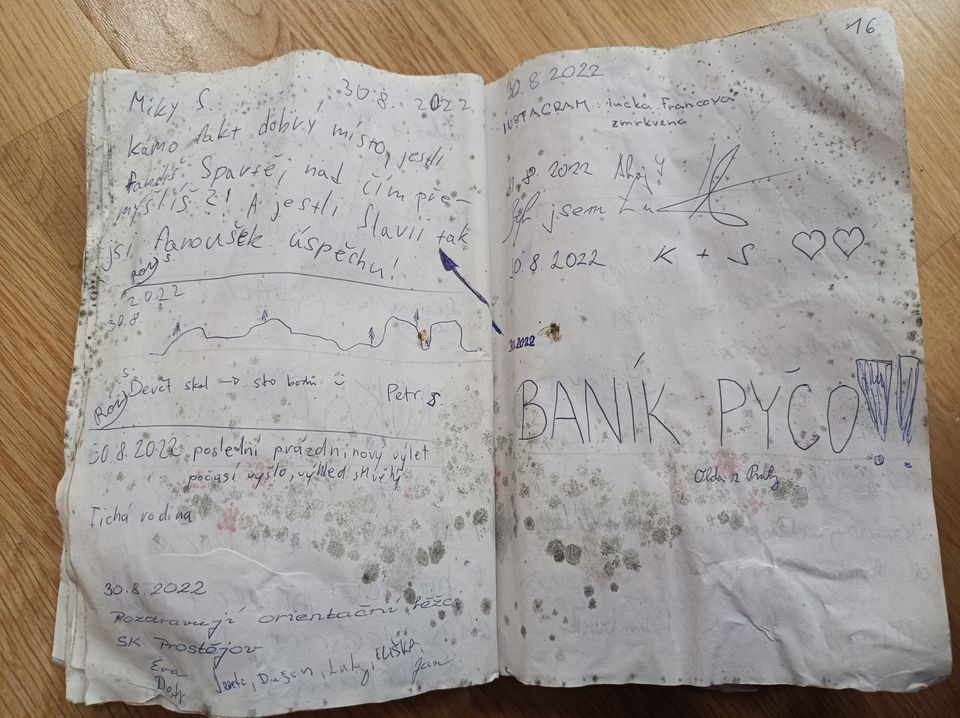 Miky S. 30.8. 2022
Kámo fakt dobrý místo, jestli
fandíš Spartě, nad čím pře-
mýšlíš?! A jestli Slavii tak
jsi Fanoušek úspěchu!
2022
30.8
Devět skal → sto bodů Petr S
30.8.2022 poslední prázdninový výlet
počasí vyšlo, výhled skvělý
Tichá rodina
30.8.2022
Pozdravují orientační běžci
SK Prostějov
Eva Dušan, ELIŠKA, Jan
16
30.8.2022
INSTAGRAM: lucka.francova
zmrkvena
30.8.2022 Ahoj!
jsem
30.8.2022 K + S
30.2022
BANÍK PYČO!!
Olda z Prahy